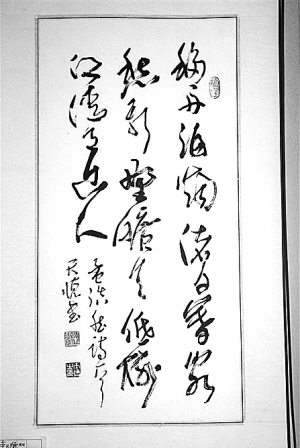 移舟泊烟渚日暮客
愁新野曠天低樹
江清月近人
孟浩然詩